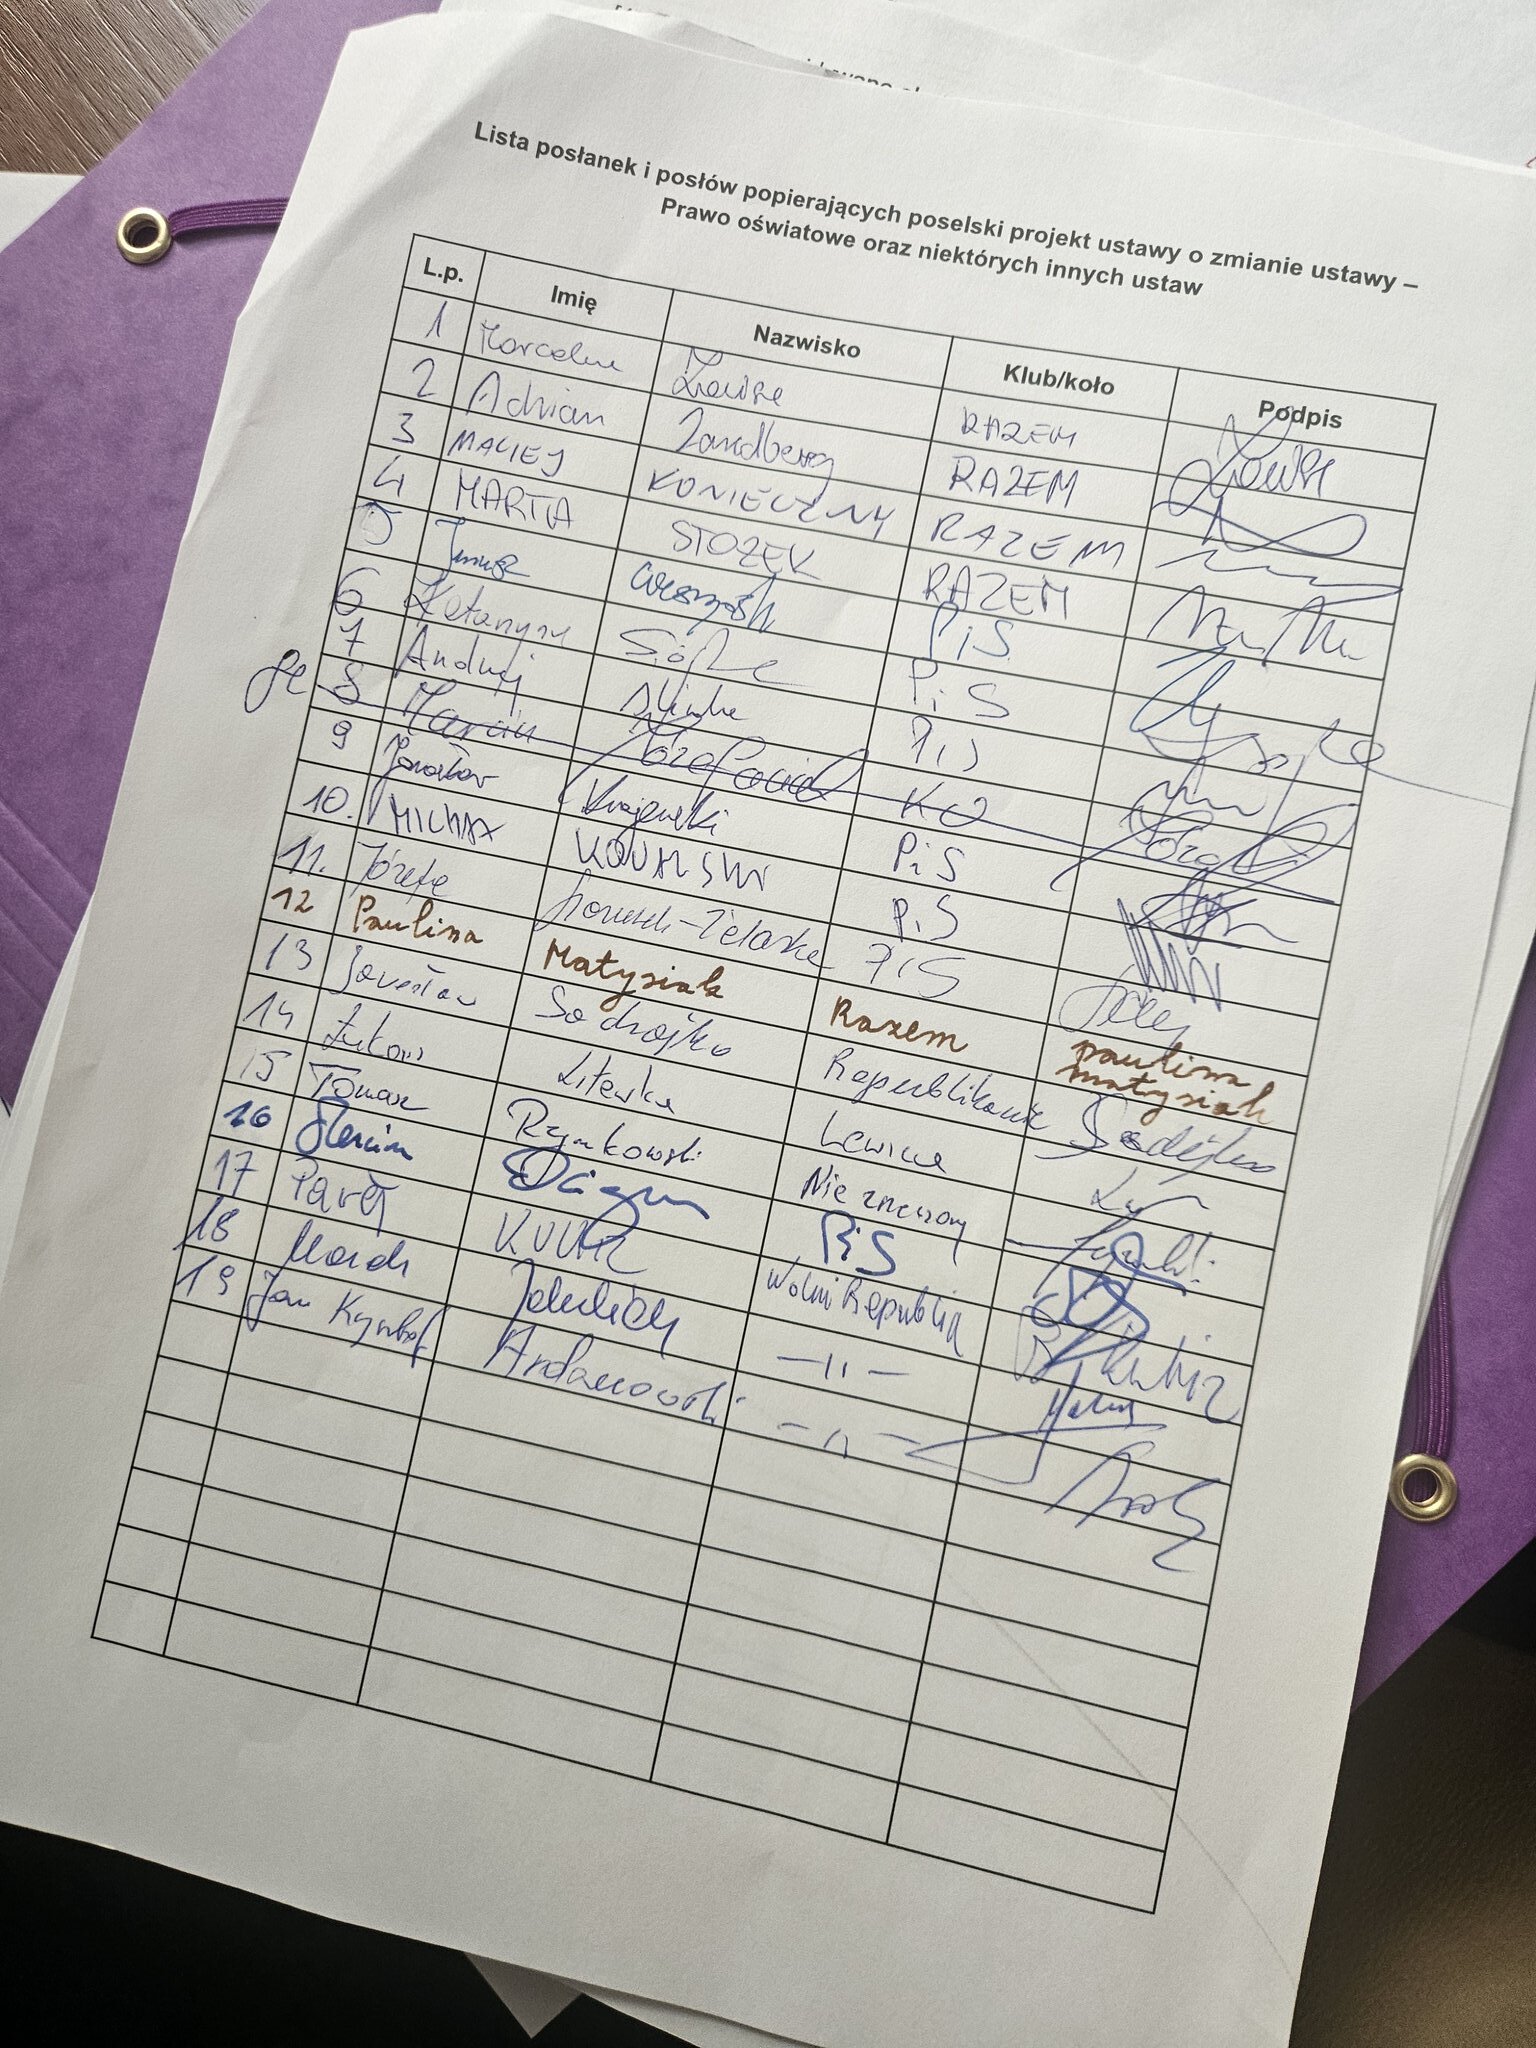 Lista posłanek i posłów popierających poselski projekt ustawy o zmianie ustawy –
Prawo oświatowe oraz niektórych innych ustaw
L.p. Imię Nazwisko Klub/koło Podpis
1 Marcelina Zawisza RAZEM Zawisza
2 Adrian Zandberg RAZEM
3 MACIEJ KONIECZNY RAZEM
4 MARTA STOŻEK RAZEM
5 Janusz Cieszyński PiS
6 Katarzyna Sójka PiS
7 Andrzej Śliwka PiS
8 Marcin Józefaciuk KO
9 Jarosław Krajewski PiS
10. MICHAŁ KOWALSKI PiS
11. Józefa Szczurek-Żelazko PiS
12 Paulina Matysiak Razem paulina matysiak
13 Jarosław Sachajko Republikanie
14 Łukasz Litewka Lewica
15 Tomasz Rzymkowski Niezrzeszony
16 Marcin PiS
17 Paweł KUKIZ Wolni Republika
18 Marek Jakubiak –11–
19 Jan Krzysztof Ardanowski –11–